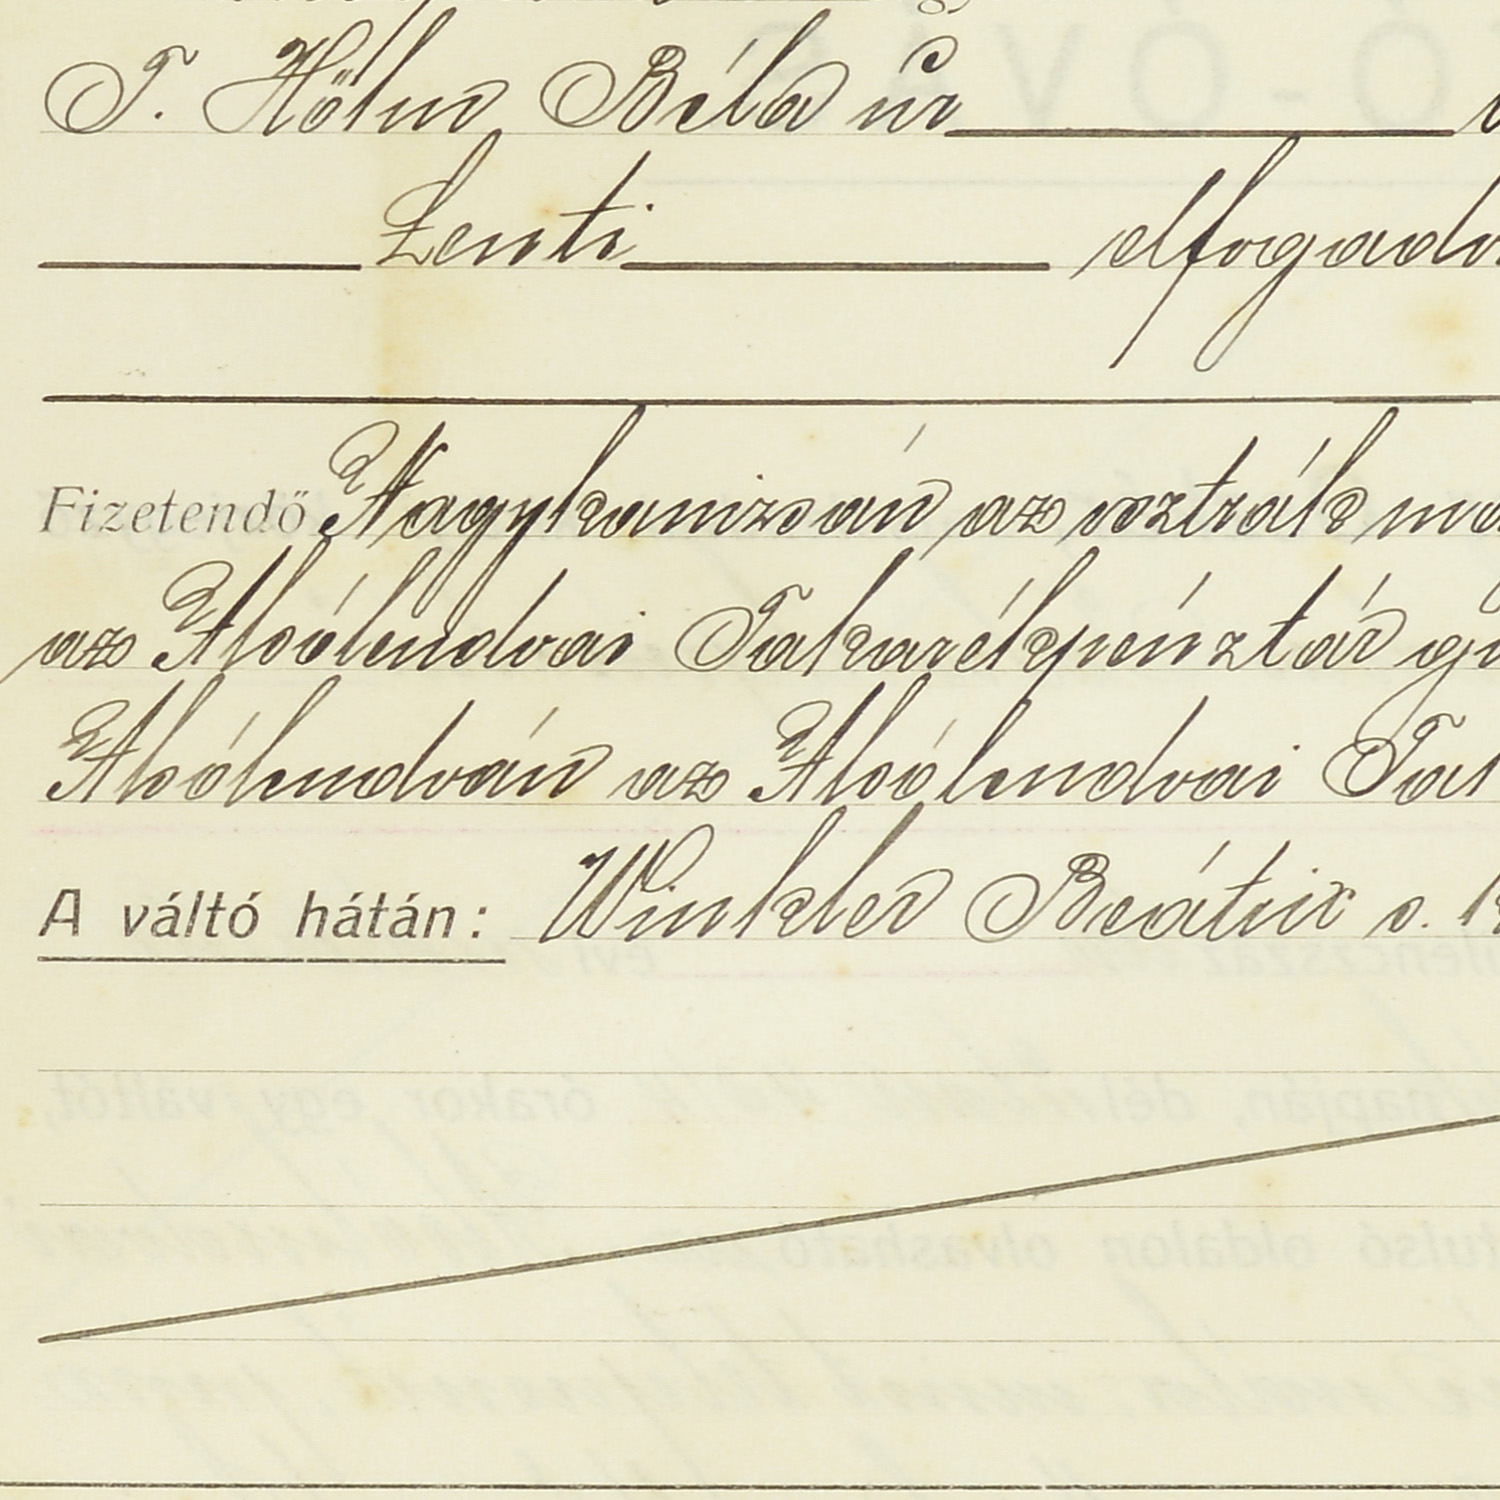 T. Hölm Béla úr
Lenti elfogadv
Fizetendő Nagykanizsán az osztrák ma
az Alsólendvai Takarékpénztár
Alsólendván az Alsólendvai Tak
A váltó hátán: Winkler Beátrix s. k